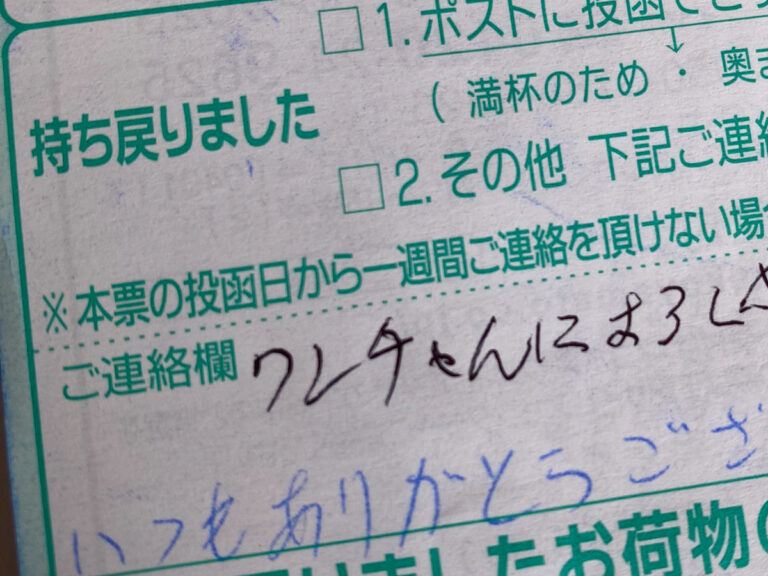 □1.ポストに投函でき
(満杯のため・奥ま
持ち戻りました
□2.その他 下記ご連絡
※本票の投函日から一週間ご連絡を頂けない場合
ご連絡欄 ワンチャんにおろしく
いつもありがとうござ
ましたお荷物の